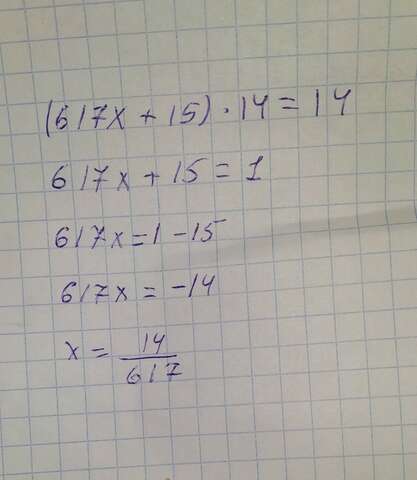 (617x + 15) · 14 = 14
617x + 15 = 1
617x = 1 - 15
617x = -14
x = 14/617